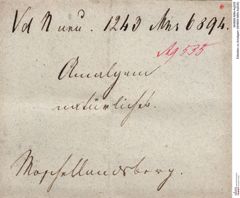 Vd N neu. 1243 Mus 6894.
Ag 535
Amalgam
natürliches.
Moschellandsberg.